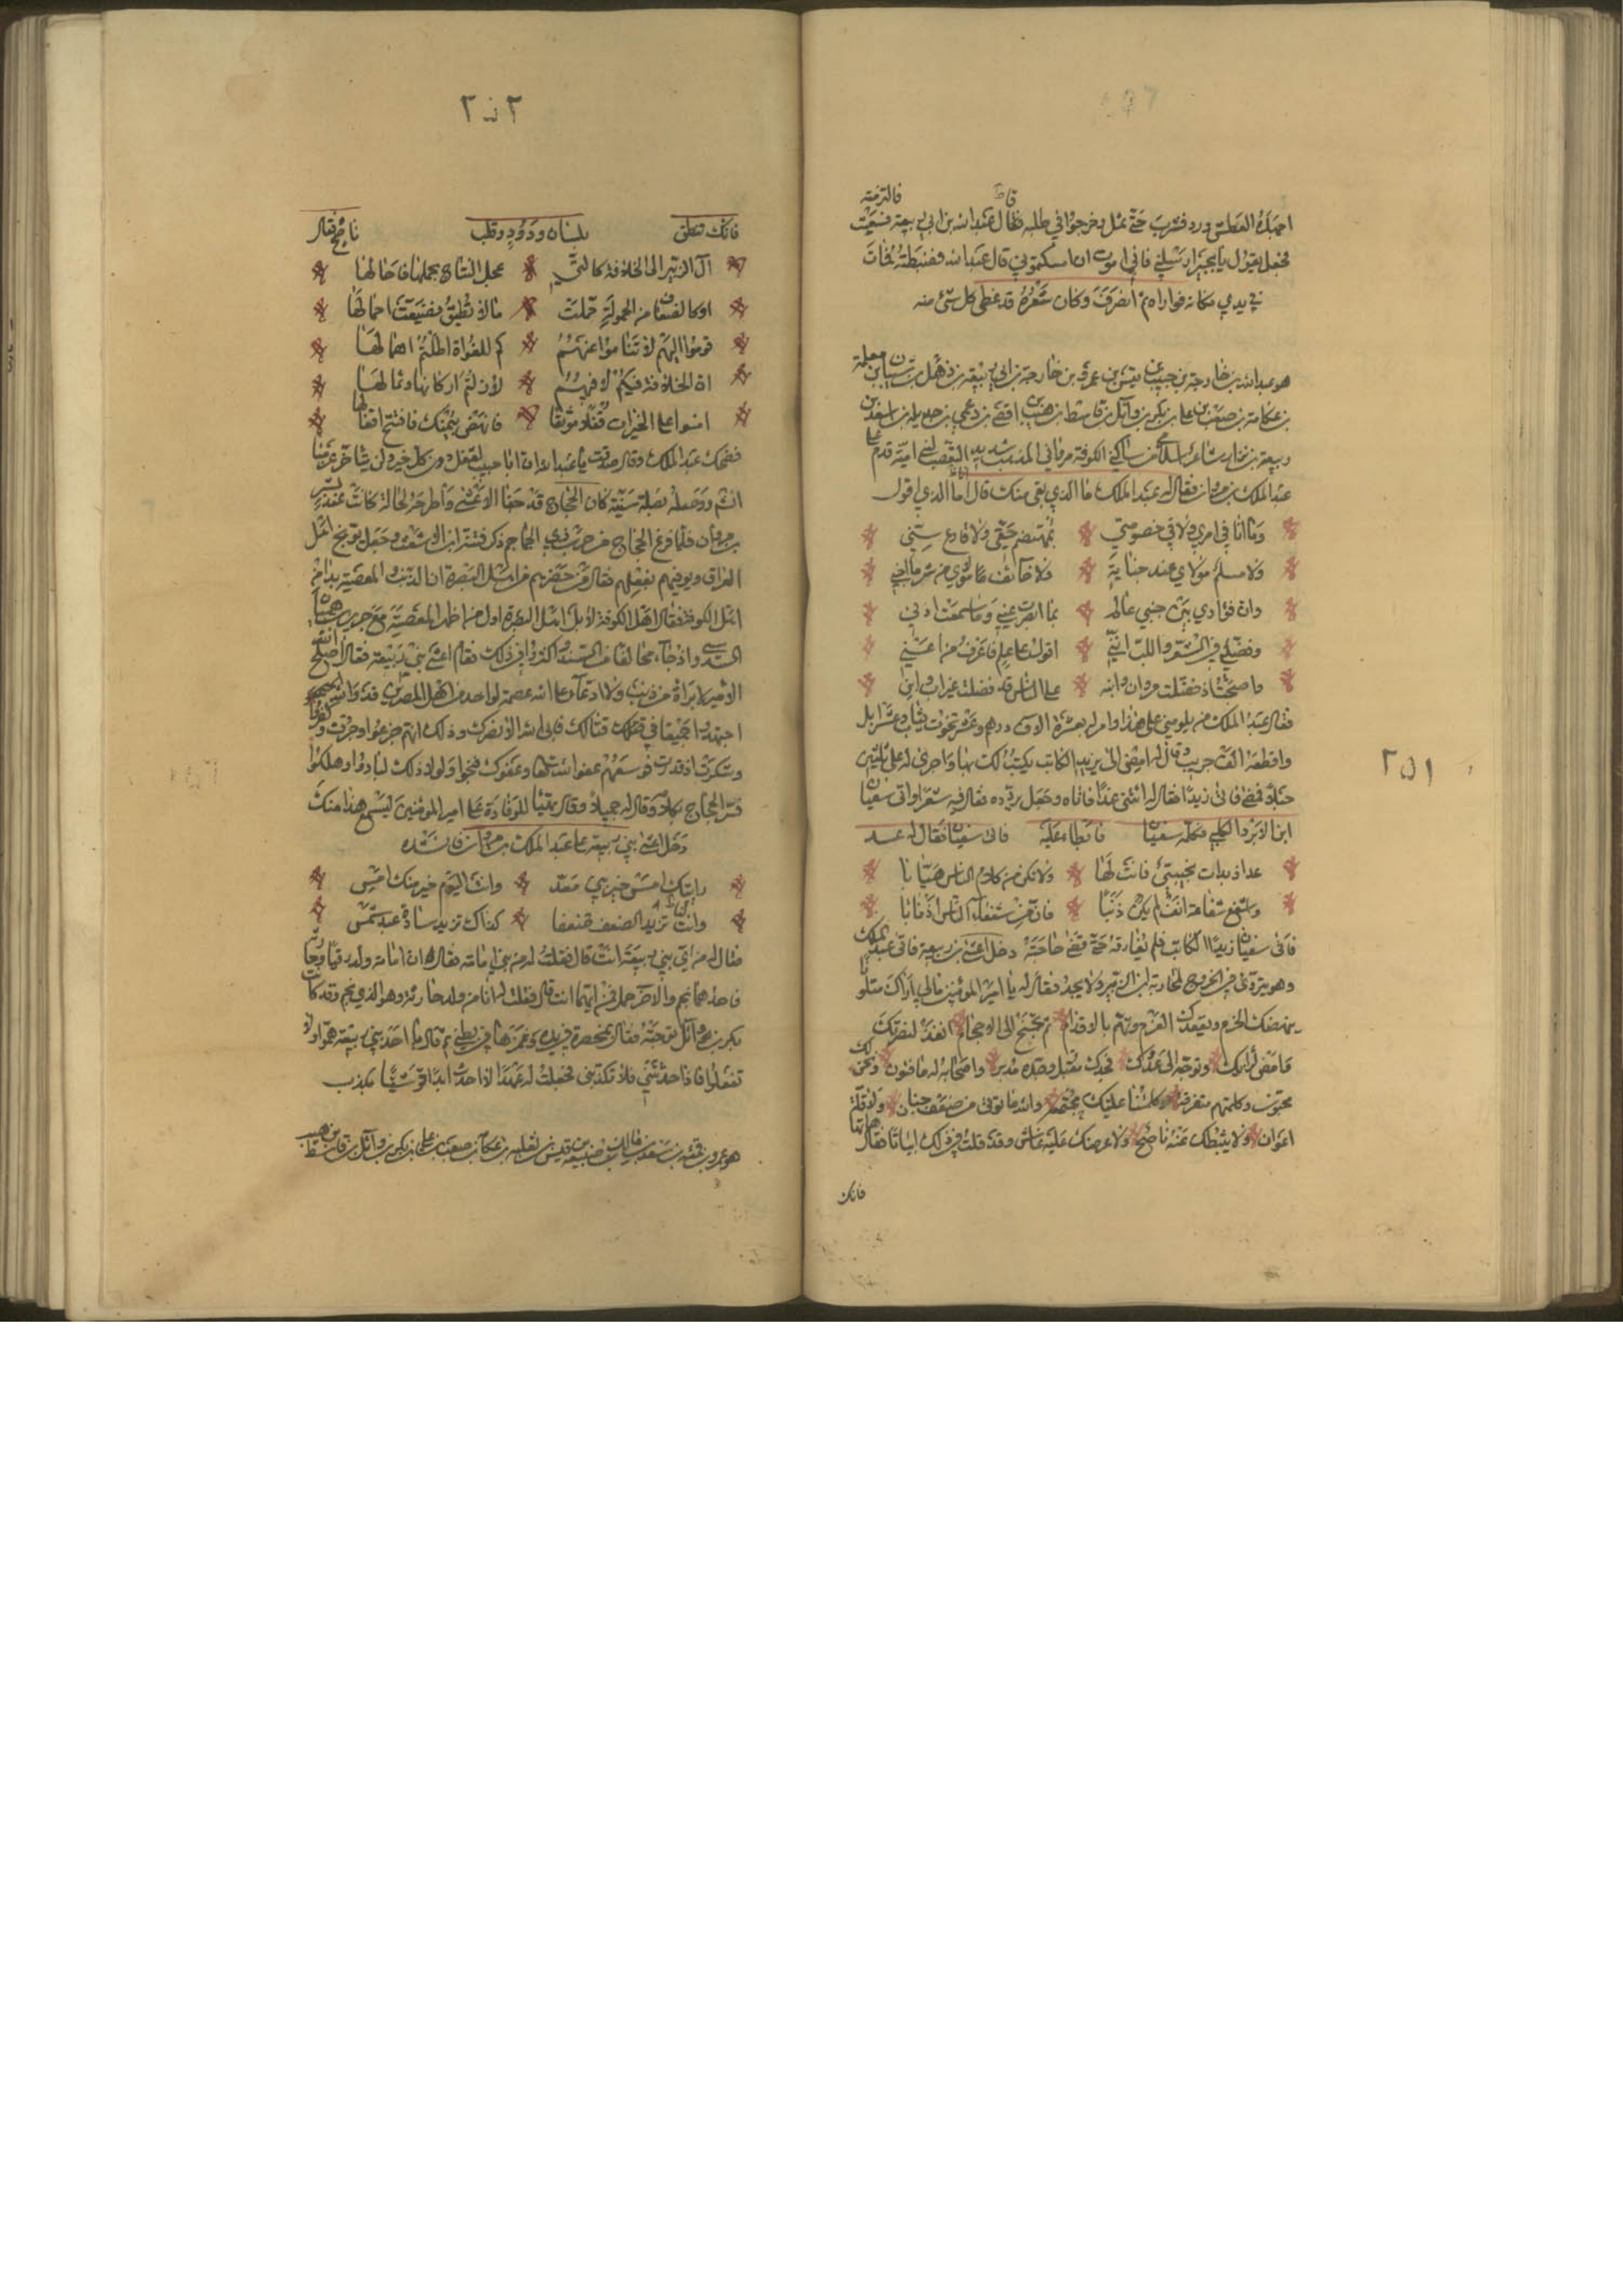 فالتزمته
اجهده العطش ورد فشرب حتى ثمل وخرجوا في طلبه قال عبد الله بن ابي ربيعة فسعيت
فجعل يقول يا بجير ارسلني فاني اموت ان امسكتموني قال عبد الله فضبطته فمات
في يدي مكانه فواراه ثم انصرف وكان شعره قد غطى كل شئ منه
هو عبد الله بن خارجة بن حبيب بن قيس بن عمرو بن خارجة بن ابي ربيعة بن ذهل بن شيبان بن ثعلبة
بن عكابة بن صعب بن علي بن بكر بن وآئل بن قاسط بن هنب بن افصى بن دعمي بن جديلة بن اسد بن
ربيعة بن نزار شاعر اسلامي من ساكني الكوفة مرواني المذهب شديد التعصب لبني امية قدم على
عبد الملك بن مروان فقال له عبد الملك ما الذي بقي منك قال انا الذي اقول
وما انا في امري ولا في خصومتي بمهتضم حقي ولا قارع سني
ولا مسلم مولاي عند جناية ولا خآئف مولاي من شر ما اجني
وان فؤادي بين جنبي عالم بما ابصرت عيني وما سمعت اذني
وفضلني في الشعر واللب انني اقول على علم واعرف من اعني
فاصبحت اذ فضلت مروان وابنه على الناس قد فضلت خير اب وابن
فقال عبد الملك من يلومني على هذا وامر له بعشرة الاف درهم وعشرة تخوت ثياب وعشر ابل
واقطعه الف جريب وقال له امض الى زيد الكاتب يكتب لك بها واجرى له على ثلثين
عيلا فمضى فاتى زيدا فقال له ائتني غدا فاتاه وجعل يردده فقال فيه شعرا واتى سفيان
ابن الابرد الكلبي فكلمه سفيان فابطاء عليه فاتى سفيان فقال له عد
عد اذ بدات بحيتي فانت لها ولا تكن من كلام الناس هيابا
واشفع شفاعة انف لم يكن ذنبا فان من شفعآء الناس اذنابا
فاتى سفيان زيدا الكاتب فلم يفارقه حتى قضى حاجته دخل اعشى بني ربيعة فاتى عبد الملك
وهو يتردد في الخروج لمحاربة ابن الزبير ولا يجد فقال له يا امير المؤمنين مالي اراك متلوما
ينهضك الحزم ويقعدك العزم وتهم بالاقدام ثم تجنح الى الاحجام انفذ لبصيرتك
فامض لرايك وتوجه الى عدوك فجدك مقبل وجده مدبر واصحابه له ماقتون ونحن لك
محبون وكلمتهم متفرقة وكلمتنا عليك مجتمعة والله ما نوتى من ضعف جنان ولا قلة
اعوان ولا يثبطك عنه ناصح ولا يحرضك عليه غاش وقد قلت في ذلك ابياتا فقال هاتها
فانك
٢٥١
٢٥٢
فانك تنطق بلسان ودود وقلب ناصح فقال
آل الزبير الى الخلافة كالتي عجل النتاج بحملها فاحالها
او كالضعاف من الحمولة حملت ما لا تطيق فضيعت احمالها
قوموا اليهم لا تناموا عنهم كم للغواة اطلتم امهالها
ان الخلافة فيكم لا فيهم لا زلتم اركانها وثمالها
امسوا على الخيرات قفلا موثقا فانهض بيمنك فافتتح اقفالها
فضحك عبد الملك وقال صدقت يا عبد الله ان ابا خبيب لقفل دون كل خير ولن يتاخر عن
انشاء الله ووصله بصلة سنية كان الحجاج قد جفا الاعشى واطرحه لحالة كانت عند بشر
بن مروان فلما فرغ الحجاج من حرب دير الجماجم ذكر فتنة ابن الاشعث وجعل يوبخ اهل
العراق ويونبهم بفعلهم فقال من حضرهم من اهل البصرة ان الذنب والمعصية بدا من
اهل الكوفة فقال اهل الكوفة لا بل اهل البصرة اول من اظهر المعصية مع جرير بن هميان
السدوسي واذ جآء مخالفا من السند واكثروا في ذلك فقام اعشى بني ربيعة فقال اصلح الله
الامير لا برآة من ذنب ولا ادعآء على الله عصمة لواحد من اهل المصرين قد والله
اجتهدوا جميعا في قتلك قتالك فابى الله الا نصرك وذلك انهم جزعوا وصبرت وكفروا
وشكرت اذ قدرت فوسعهم عفو الله ثم عفوك فنجوا ولولا ذلك لبادوا وهلكوا
فسر الحجاج بكلامه وقال له جميلا وقال تهيئا للوفادة على امير المؤمنين ليسمع هذا منك
دخل اعشى بني ربيعة على عبد الملك بن مروان فانشده
رايتك امس خير بني معد وانت اليوم خير منك امس
وانت غدا تزيد الضعف ضعفا كذاك تزيد سادة عبد شمس
فقال له من اي بني ربيعة انت قال فقلت له من بني امامة فقال ان امامة ولد رقيا وحارثة
فاحدهما نجم والآخر خمل فمن ايهما انت قال فقلت له انا من ولد حارثة وهو الذي نجم وقد كانت
بكر بن وآئل توجته فقال بمخصرة في يده وغمزها في بطني ثم قال يا احد بني ربيعة هموا ولم
تفعلوا فاذا حدثتني فلا تكذبني فجعلت له عهدا الا احدث ابدا قرشيا بكذب
هو عمرو بن قمئة بن سعد بن مالك بن ضبيعة بن قيس بن ثعلبة بن عكابة بن صعب بن علي بن بكر بن وآئل بن قاسط بن هنب